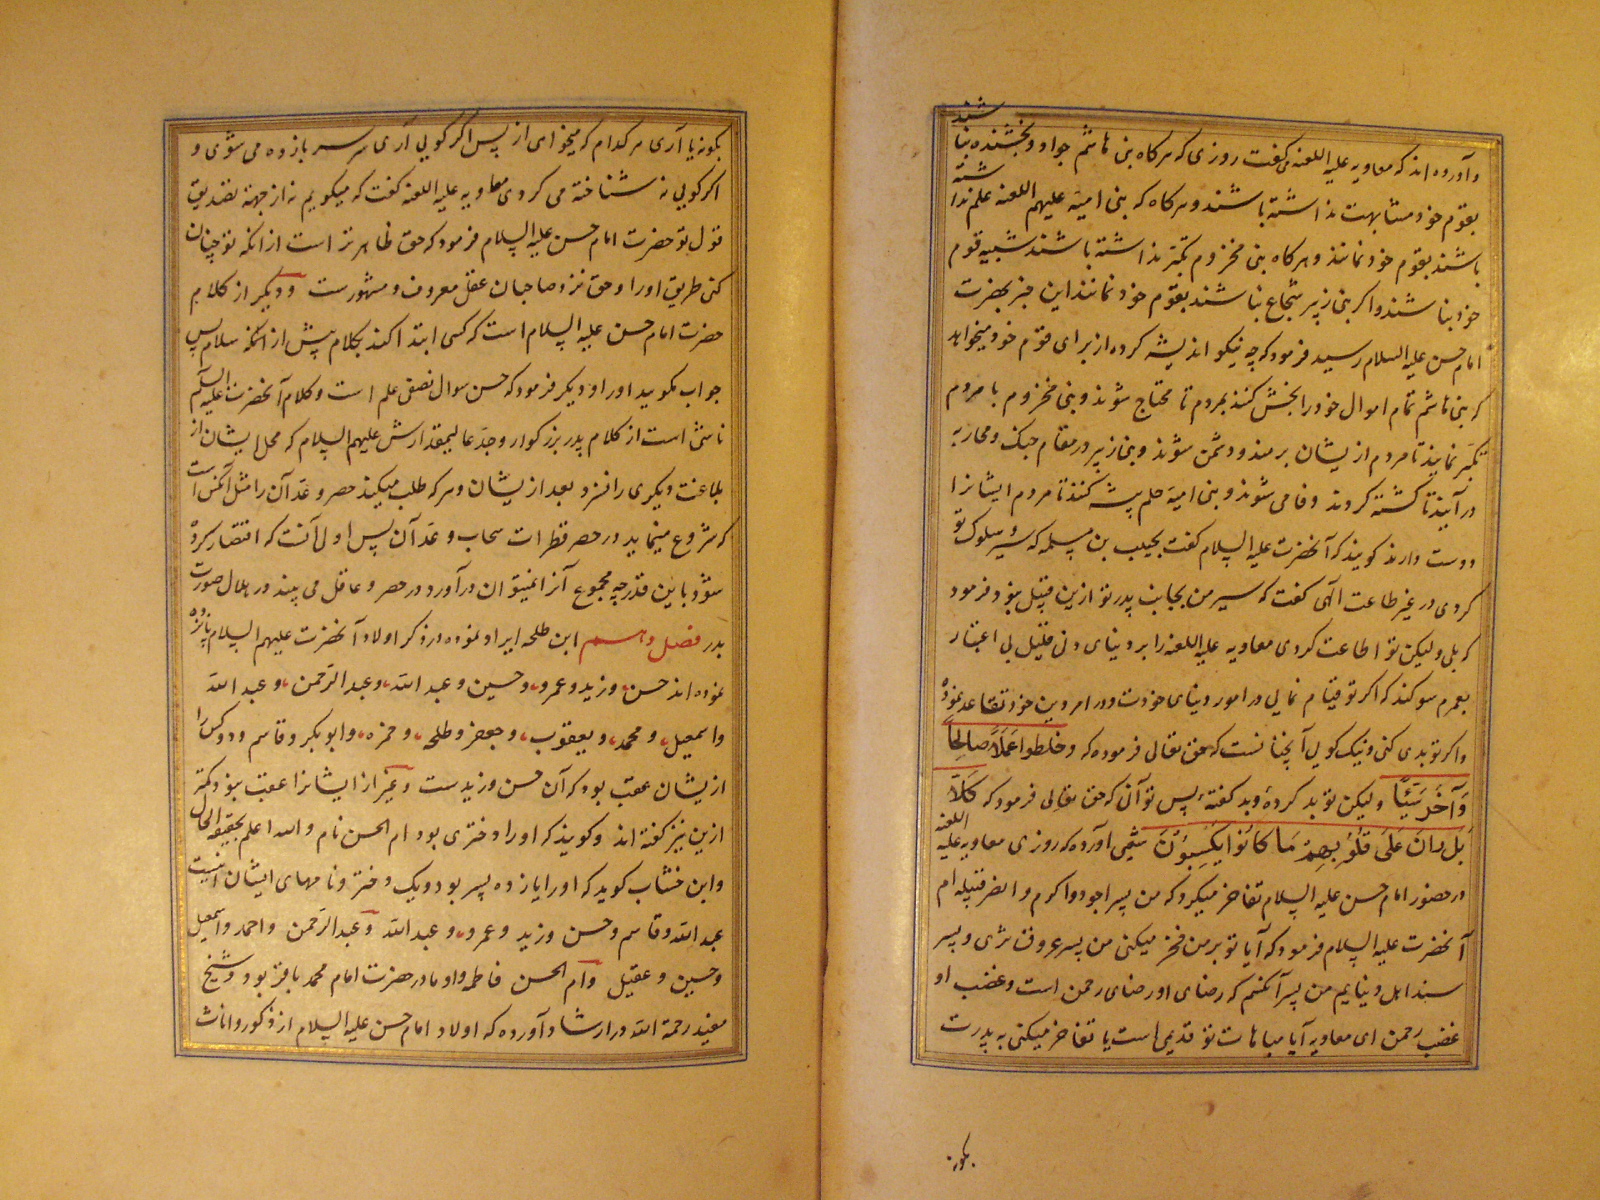 و آورده‌اند که معاویه علیه اللعنه می‌گفت روزی که هرگاه بنی هاشم جواد و بخشنده نباشند
بقوم خود مشابهت نداشته باشند و هرگاه که بنی امیه علیهم اللعنه علم نداشته
باشند بقوم خود نمانند و هرگاه بنی مخزوم تکبر نداشته باشند شبیه قوم
خود نباشند و اگر بنی زبیر شجاع نباشند بقوم خود نمانند این خبر بحضرت
امام حسن علیه السلام رسید فرمود که چه نیکو اندیشه کرده از برای قوم خود میخواهد
که بنی هاشم تمام اموال خود را بخش کنند بمردم تا محتاج شوند و بنی مخزوم با مردم
تکبر نمایند تا مردم ازیشان برمند و دشمن شوند و بنی زبیر در مقام جنک و محاربه
درآیند تا کشته کردند و فانی شوند و بنی امیه حلم پیشه کنند تا مردم ایشانرا
دوست دارند کویند که آنحضرت علیه السلام کفت بحبیب بن مسلمه که سیر و سلوک تو
کردی در غیر طاعت آلهی کفت که سیر من بجانب پدر تو ازین قبیل نبود فرمود
که بلی ولیکن تو اطاعت کردی معاویه علیه اللعنه را بر دنیای دنی قلیل بی اعتبار
بعمرم سوکند که اگر تو قیام نمایی در امور دنیای خودت و در امر دین خود تقاعد نموده
و اکر تو بدی کنی و نیک کویی آنچنانست که حق تعالی فرموده که و خلطوا عَمَلاً صالِحاً
وَآخَرَ سَیِّئاً ولیکن تو بد کردهٔ و بد کفتهٔ پس تو آن که حق تعالی فرمود که کَلّا
بَل رانَ عَلَی قُلُوبِهِم مَا کانُوا یَکسِبُونَ شعبی آورده که روزی معاویه علیه اللعنه
در حضور امام حسن علیه السلام تفاخر میکرد که من پسر اجود و اکرم و انضر قبیله ام
آنحضرت علیه السلام فرمود که آیا تو بر من فخر میکنی من پسر عروق ثری و پسر
سید اهل دنیایم من پسر آنکسم که رضای او رضای رحمن است و غضب او
غضب رحمن ای معاویه آیا مباهات تو قدیمی است یا تفاخر میکنی به پدرت
بکو نه
بکو نه یا آری هر کدام که میخواهی از پس اکر کویی آری سر باز زده می شوی و
اکر کویی نه شناخته می کردی معاویه علیه اللعنه کفت که میکویم نه از جهة تصدیق
قول تو حضرت امام حسن علیه السلام فرمود که حق ظاهرتر است از آنکه تو چنان
کنی طریق او را و حق نزد صاحبان عقل معروف و مشهورست و دیکر از کلام
حضرت امام حسن علیه السلام است که کسی ابتدا کند بکلام پیش از آنکه سلام پس
جواب مکویید او را و دیکر فرمود که حسن سوال نصف علم است و کلام آنحضرت علیه السلام
ناشی است از کلام پدر بزرکوار و جد عالیمقدارش علیهم السلام که محل ایشان از
بلاغت دیکری را نسزد بعد ازیشان و هر که طلب میکند حصر و عد آن را مثل آنکس است
که شروع مینماید در حصر قطرات سحاب و عد آن پس اولی آنست که اقتصار کرده
شود باین قدر چه مجموع آنرا نمیتوان درآورد در حصر و عاقل می بیند در هلال صورت
بدر فصل دهم ابن طلحه ایراد نموده در ذکر اولاد آنحضرت علیهم السلام پانزده
نموده اند حسن و زید و عمرو و حسین و عبد الله و عبد الرحمن و عبد الله
و اسمعیل و محمد و یعقوب و جعفر و طلحه و حمزه و ابوبکر و قاسم و دو کس را
ازیشان عقب بود که آن حسن و زیدست و غیر از ایشانرا عقب نبود و کمتر
ازین نیز کفته اند و کویند که او را دختری بود ام الحسن نام و الله اعلم بحقیقة الحال
و ابن خشاب کوید که او را یازده پسر بود و یک دختر و نامهای ایشان اینست
عبد الله و قاسم و حسن و زید و عمرو و عبد الله و عبد الرحمن و احمد و اسمعیل
و حسین و عقیل و ام الحسن فاطمه و او مادر حضرت امام محمد باقر بود و شیخ
مفید رحمة الله در ارشاد آورده که اولاد امام حسن علیه السلام از ذکور و اناث